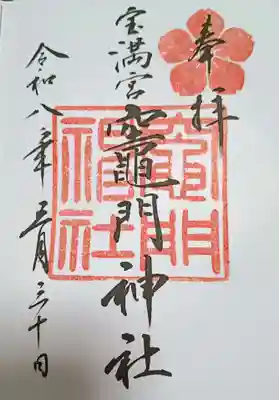 奉拝
宝満宮
竈門神社
竈門
神社
令和八年月三十日